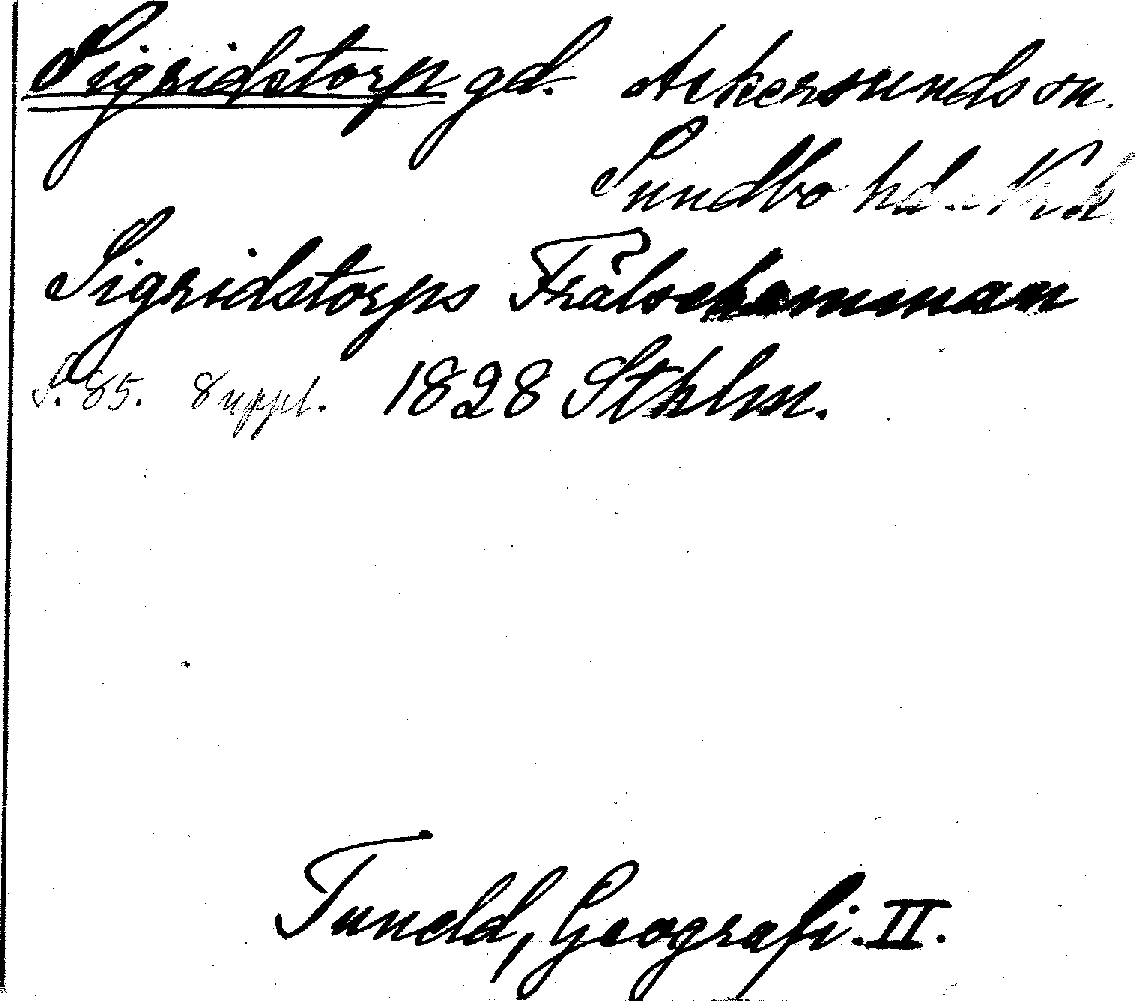 Sigridstorp gd. Askersunds sn.
Sundbo hd. Nrk
Sigridstorps Frälsehemman
S. 85. Suppl. 1828 Sthlm.
Tuneld, Geografi. II.